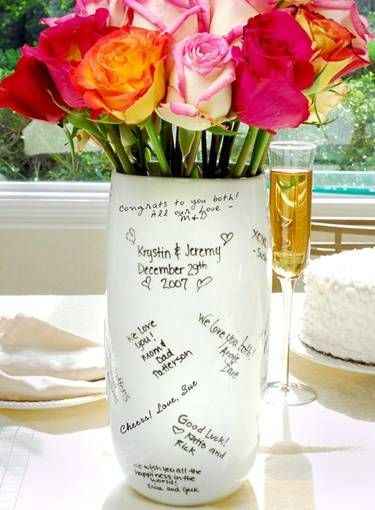 Congrats to you both!
All our Love -
M&D
Krystin & Jeremy
December 29th
2007
XOXO
We love
you!
Mom &
Dad
Patterson
We love you both!
Cheers! Love, Sue
Good Luck!
Katie and
Rick
We wish you all the
happiness in the
world!
and Jack